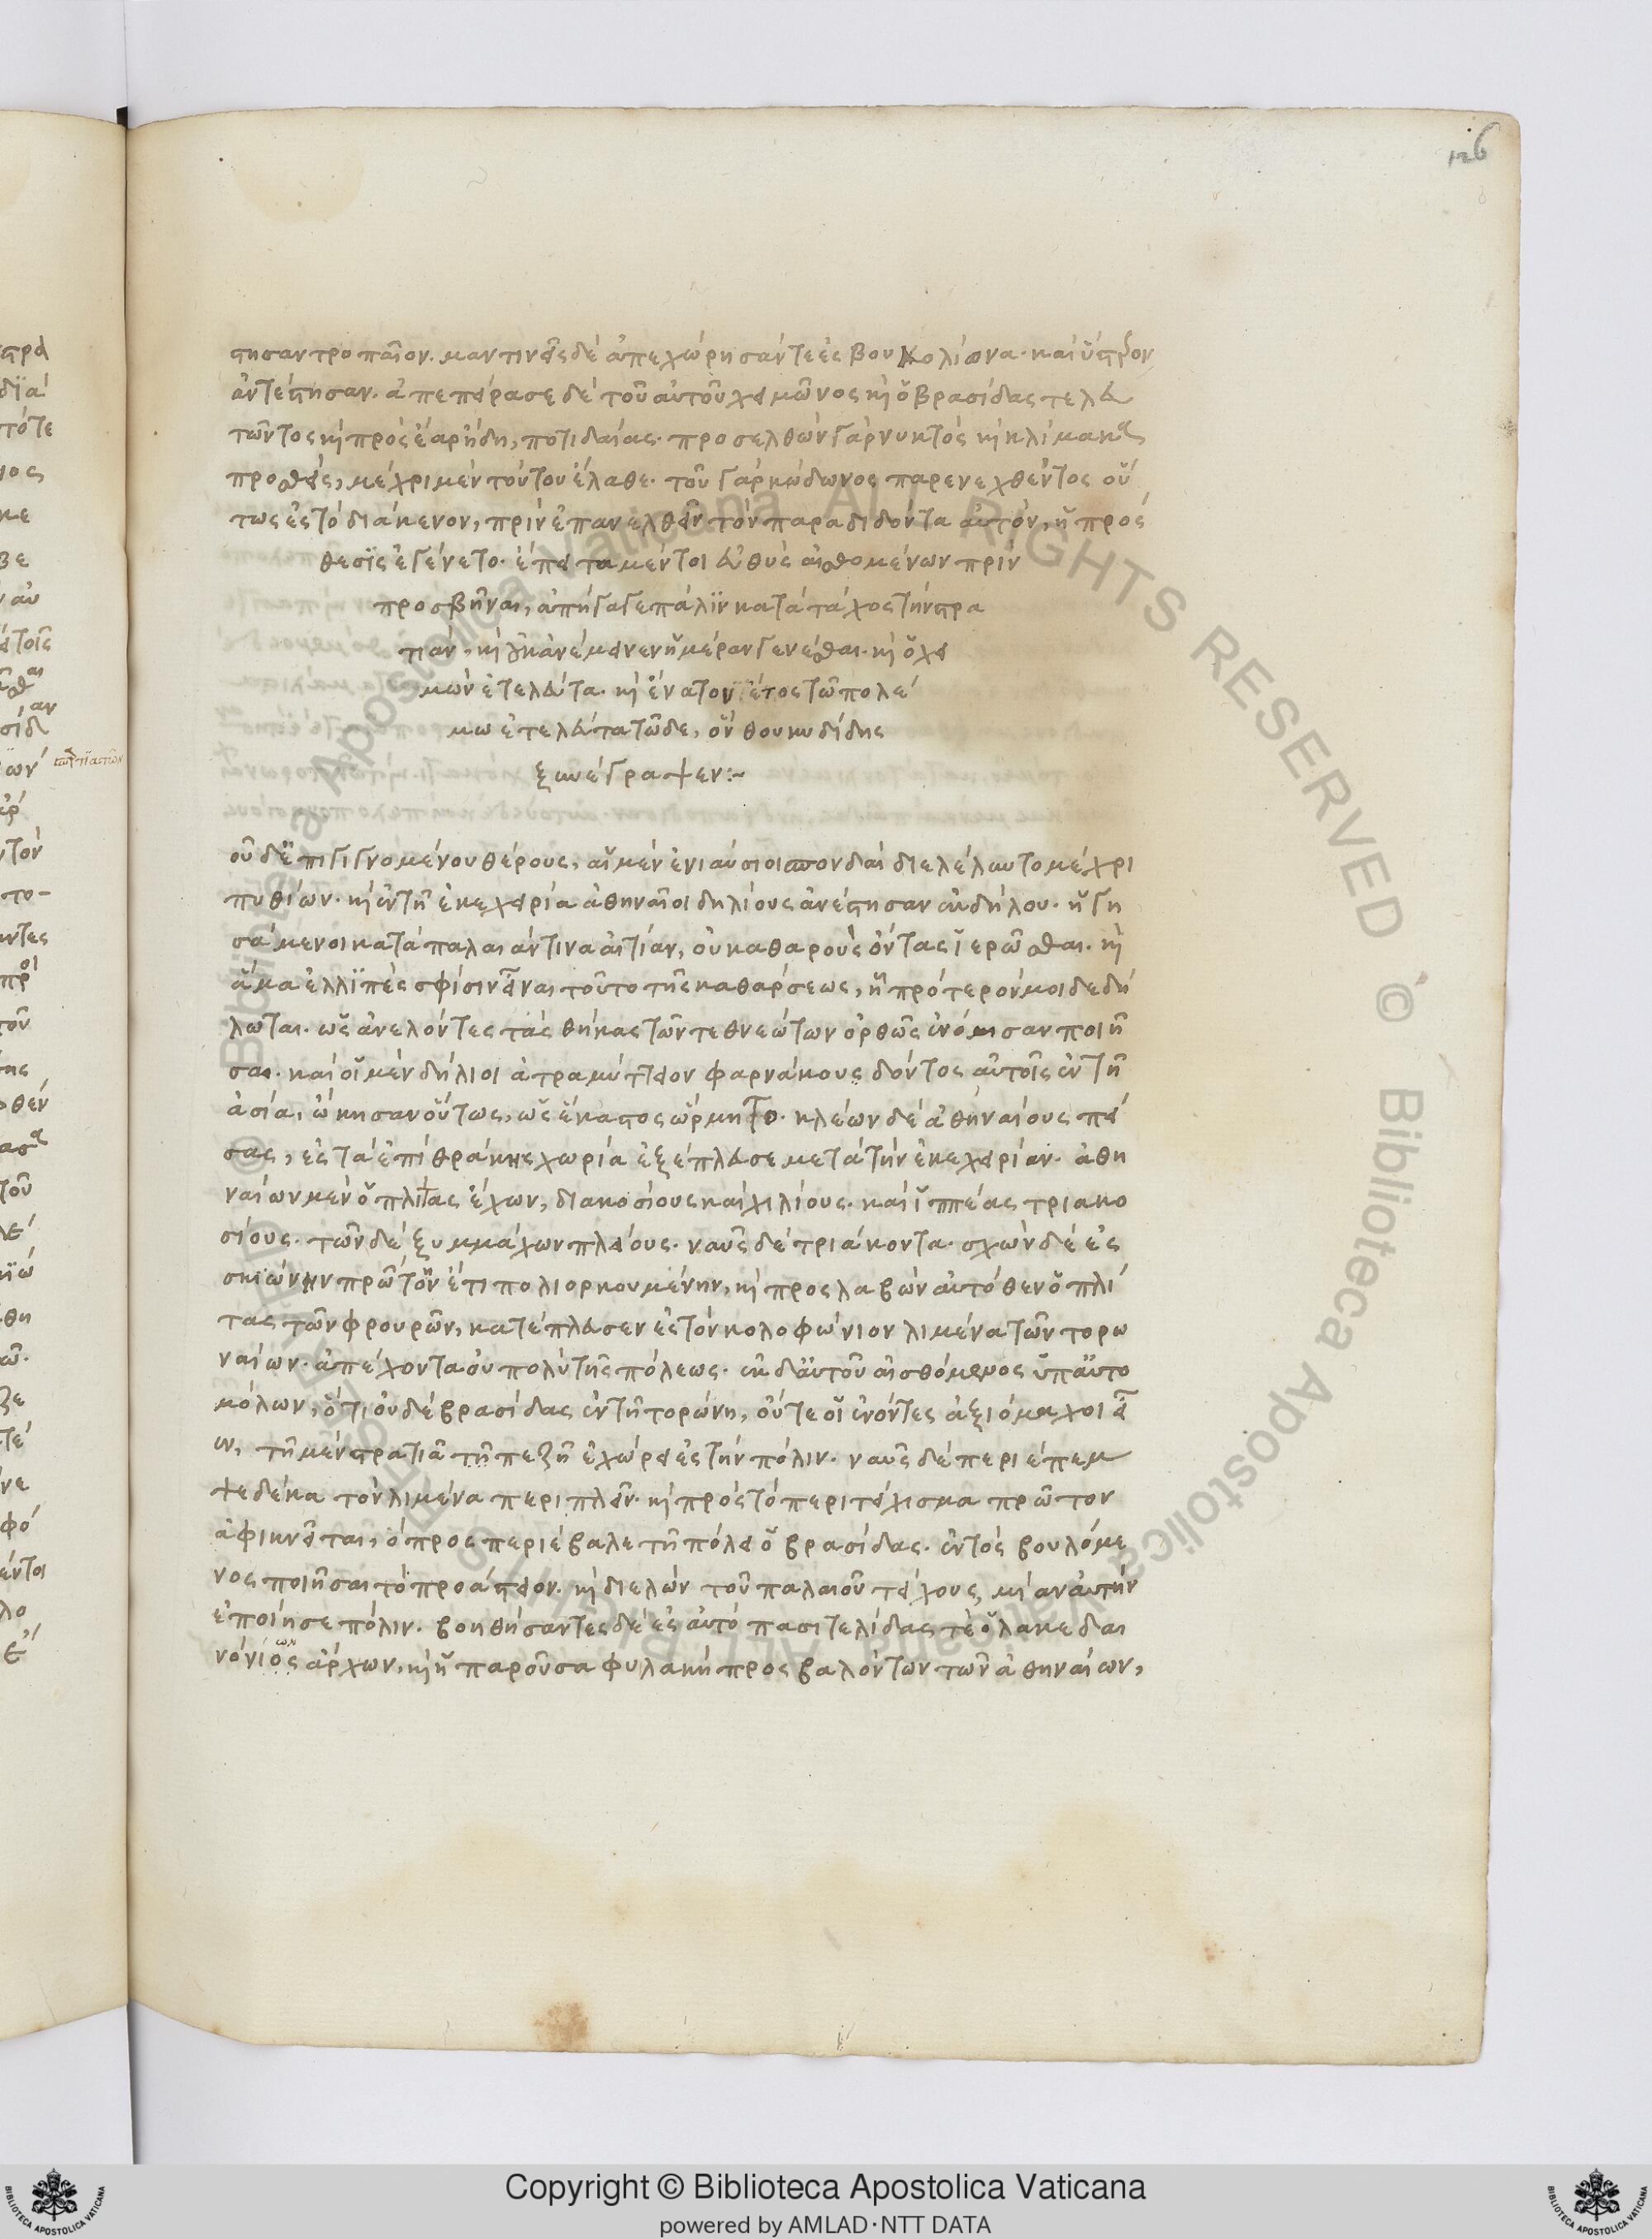 126
στησαν τροπαῖον. μαντινεῖς δὲ ἀπεχώρησάν τε ἐς βουκολίωνα. καὶ ὕστερον
ἀντέστησαν. ἀπεπείρασε δὲ τοῦ αὐτοῦ χειμῶνος κὶ ὁ βρασίδας τελευ
τῶντος κὶ πρὸς ἔαρ ἤδη, ποτιδαίας. προσελθὼν γὰρ νυκτὸς κὶ κλίμακας
προσθεὶς, μέχρι μὲν τούτου ἔλαθε. τοῦ γὰρ κώδωνος παρενεχθέντος οὕ
τως ἐς τὸ διάκενον, πρὶν ἐπανελθεῖν τὸν παραδιδόντα αὐτὸν, ἡ πρόσ
θεσις ἐγένετο. ἔπειτα μέντοι εὐθὺς αἰσθομένων πρὶν
προσβῆναι, ἀπήγαγε πάλιν κατὰ τάχος τὴν στρα
τιὰν, κὶ οὐκ ἀνέμεινεν ἡμέραν γενέσθαι. κὶ ὁ χει
μὼν ἐτελεύτα. κὶ ἔνατον ἔτος τῶ πολέ
μω ἐτελεύτα τῶδε, ὃν θουκυδίδης
ξυνέγραψεν:~
οῦ δ' ἐπιγιγνομένου θέρους, αἱ μὲν ἐνιαύσιοι σπονδαὶ διελέλυντο μέχρι
πυθίων. κὶ ἐν τῆ ἐκεχειρία ἀθηναῖοι δηλίους ἀνέστησαν ἐκ δήλου. ἡγη
σάμενοι κατὰ παλαιάν τινα αἰτίαν, οὐ καθαροὺς ὄντας ἱερῶσθαι. κὶ
ἅμα ἐλλιπὲς σφίσιν εἶναι τοῦτο τῆς καθάρσεως, ἧ πρότερόν μοι δεδή
λωται. ὡς ἀνελόντες τὰς θήκας τῶν τεθνεώτων ὀρθῶς ἐνόμισαν ποιῆ
σαι. καὶ οἱ μὲν δήλιοι ἀτραμύττειον φαρνάκους δόντος αὐτοῖς ἐν τῆ
ἀσία, ὤκησαν οὕτως, ὡς ἕκαστος ὥρμητο. κλέων δὲ ἀθηναίους πεί
σας, ἐς τὰ ἐπὶ θράκης χωρία ἐξέπλευσε μετὰ τὴν ἐκεχειρίαν. ἀθη
ναίων μὲν ὁπλίτας ἔχων, διακοσίους καὶ χιλίους. καὶ ἱππέας τριακο
σίους. τῶν δὲ ξυμμάχων πλείους. ναῦς δὲ τριάκοντα. σχὼν δὲ ἐς
σκιώνην πρῶτον ἔτι πολιορκουμένην, κὶ προσλαβὼν αὐτόθεν ὁπλί
τας τῶν φρουρῶν, κατέπλευσεν ἐς τὸν κολοφώνιον λιμένα τῶν τορω
ναίων. ἀπέχοντα οὐ πολὺ τῆς πόλεως. ἐκ δ' αὐτοῦ αἰσθόμενος ὑπ' αὐτο
μόλων, ὅτι οὐδὲ βρασίδας ἐν τῆ τορώνη, οὔτε οἱ ἐνόντες ἀξιόμαχοι εἶ
εν, τῆ μὲν στρατιᾶ τῆ πεζῆ ἐχώρει ἐς τὴν πόλιν. ναῦς δὲ περιέπεμ
ψε δέκα τὸν λιμένα περιπλεῖν. κὶ πρὸς τὸ περιτείχισμα πρῶτον
ἀφικνεῖται, ὃ προσπεριέβαλε τῆ πόλει ὁ βρασίδας. ἐντὸς βουλόμε
νος ποιῆσαι τὸ προάστειον. κὶ διελὼν τοῦ παλαιοῦ τείχους, μίαν αὐτὴν
ἐποίησε πόλιν. βοηθήσαντες δὲ ἐς αὐτὸ πασιτελίδας τὲ ὁ λακεδαι
μόνιος ἄρχων, κὶ ἡ παροῦσα φυλακὴ προσβαλόντων τῶν ἀθηναίων,
Copyright © Biblioteca Apostolica Vaticana
powered by AMLAD·NTT DATA